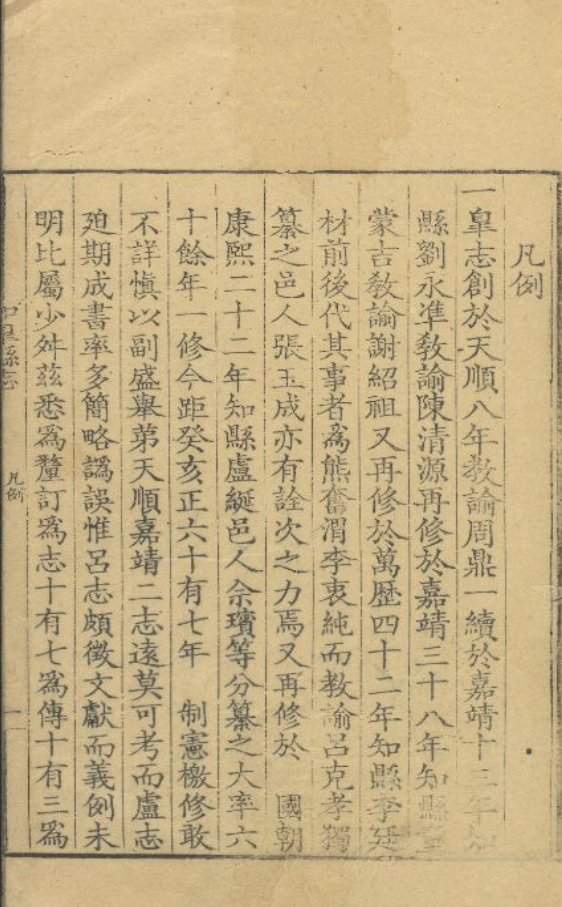 凡例
一皐志創於天順八年教諭周鼎一續於嘉靖十三年知
縣劉永凖敎諭陳清源再修於嘉靖三十八年知縣童
蒙吉敎諭謝紹祖又再修於萬歷四十二年知縣李廷
材前後代其事者爲熊奮渭李衷純而教諭呂克孝獨
纂之邑人張玉成亦有詮次之力焉又再修於 國朝
康熙二十二年知縣盧綖邑人佘瓆等分纂之大率六
十餘年一修今距癸亥正六十有七年 制憲檄修敢
不詳愼以副盛舉第天順嘉靖二志遠莫可考而盧志
廹期成書率多簡略譌誤惟呂志頗徵文獻而義例未
明比屬少舛茲悉爲釐訂爲志十有七爲傳十有三爲
如皐縣志
凡例
一